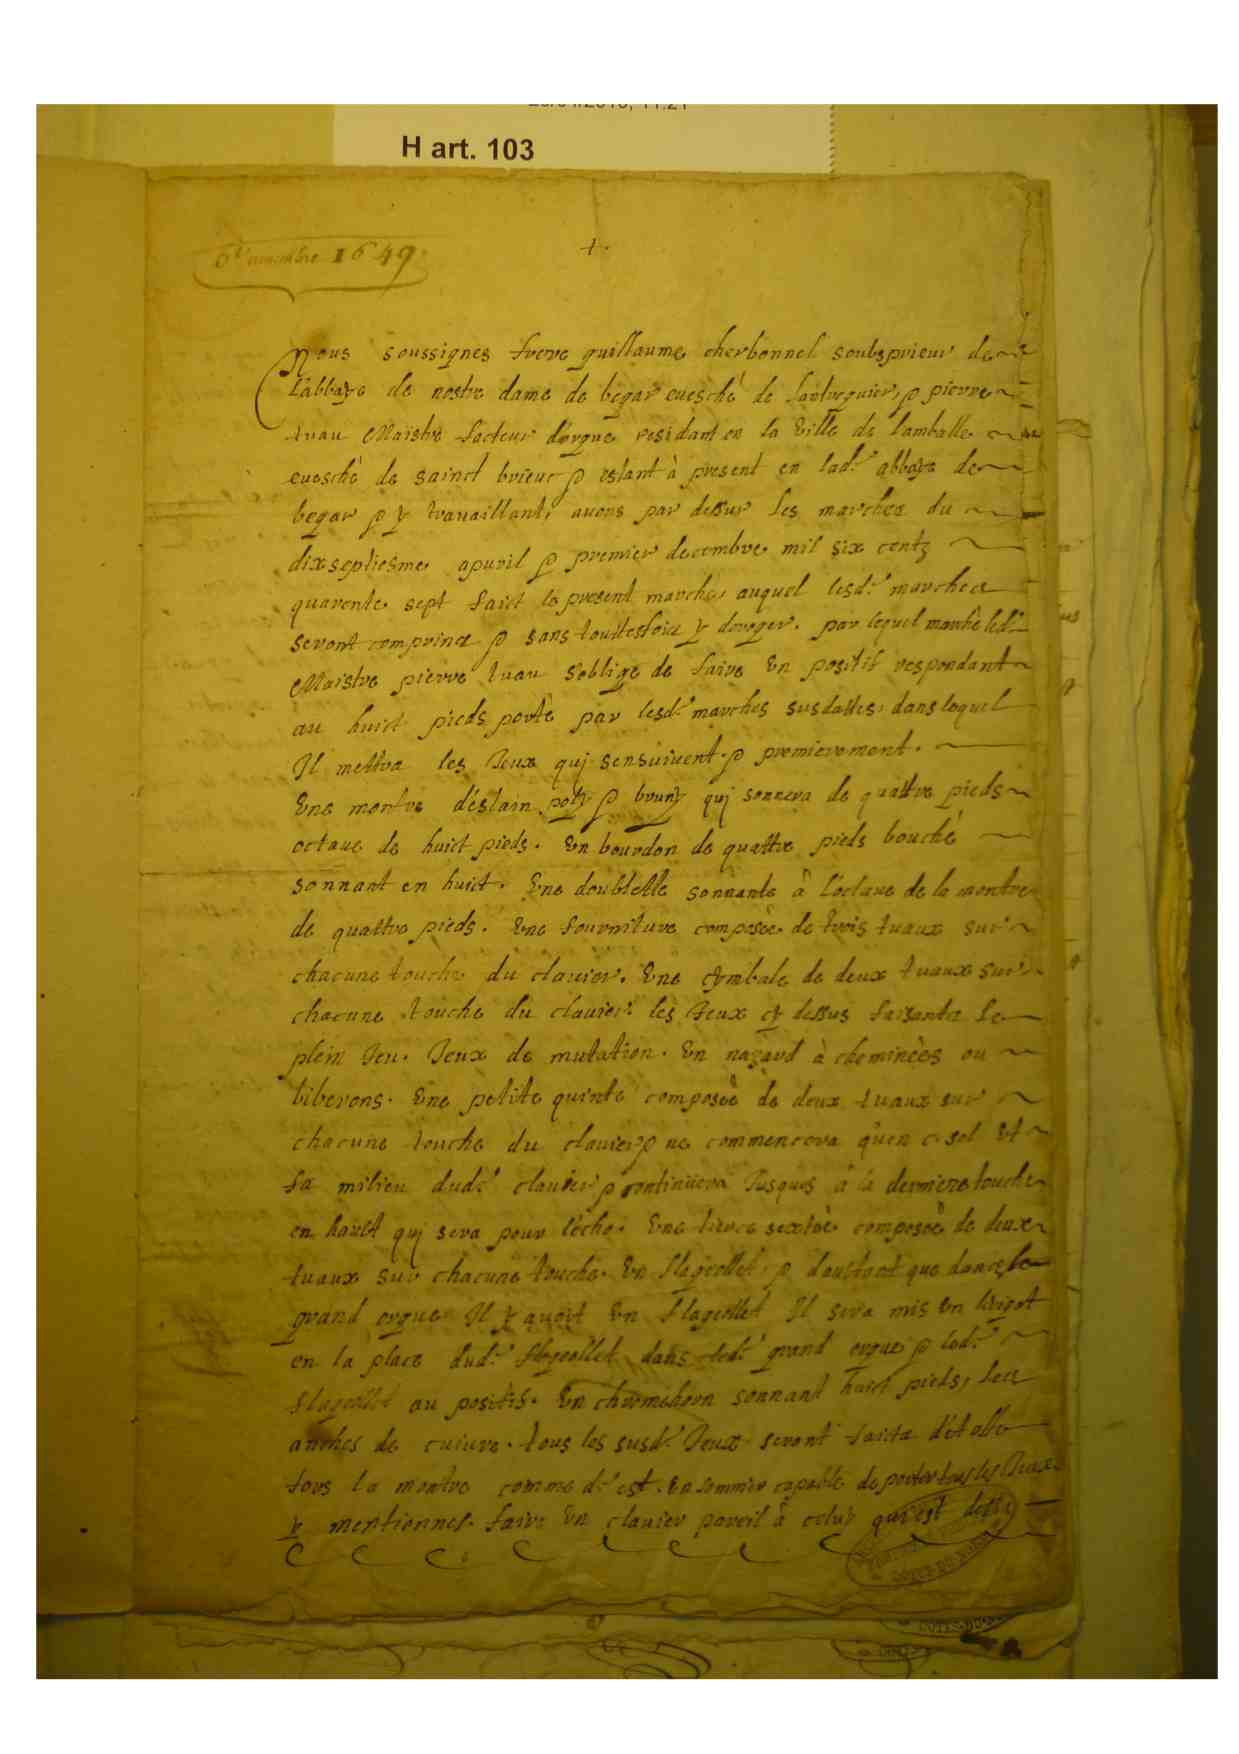 H art. 103
6e novembre 1649.
Nous soussignes frere guillaume cherbonnel soubsprieur de
Labbaye de nostre dame de begar euesché de Lantreguier, & pierre
tuau Maistre facteur dorgue residant en la Ville de lamballe
euesché de sainct brieuc & estant à present en lade abbaye de
begar & y trauaillant, auons par dessur les marches du
dixseptiesme apuril & premier decembre mil six centz
quarente sept faict le present marché, auquel lesds marches
seront comprins & sans touttesfois y deroger. par lequel marché led
Maistre pierre tuau soblige de faire Vn positif respondant
au huict pieds porté par lesds marches susdattes, dans lequel
Il mettra les Jeux quj sensuiuent & premierement.
Vne montre déstain poly & bruny quj sonnera de quattre pieds
octaue de huict pieds. Vn bourdon de quattre pieds bouché
sonnant en huict. Vne doublette sonnante à Loctaue de la montre
de quattre pieds. Vne fourniture composée de trois tuaux sur
chacune touche du clauier. Vne cymbale de deux tuaux sur
chacune touche du clauier les Jeux cy dessus faisants le
plein Jeu. Jeux de mutation. Vn nazard à cheminées ou
biberons. Vne petite quinte composée de deux tuaux sur
chacune touche du clauier & ne commencera qu'en c sol Vt
fa milieu dudt clauier & continuera Jusques à la derniere touche
en hault quj sera pour lécho. Vne tierce composée de deux
tuaux sur chacune touche. Vn flageollet, & daultant que dans le
grand orgue Il y auoit Vn flageollet Il sera mis Vn larigot
en la place dudt flageollet dans ledt grand orgue & ledt
flageollet au positif. Vn chromehorn sonnant huict pieds, les
anches de cuiure. tous les susds Jeux seront faicts d'étoffe
fors la montre comme dt est. Vn sommier capable de porter tous les Jeux
y mentionnes. faire Vn clauier pareil à celuy quj est dessus